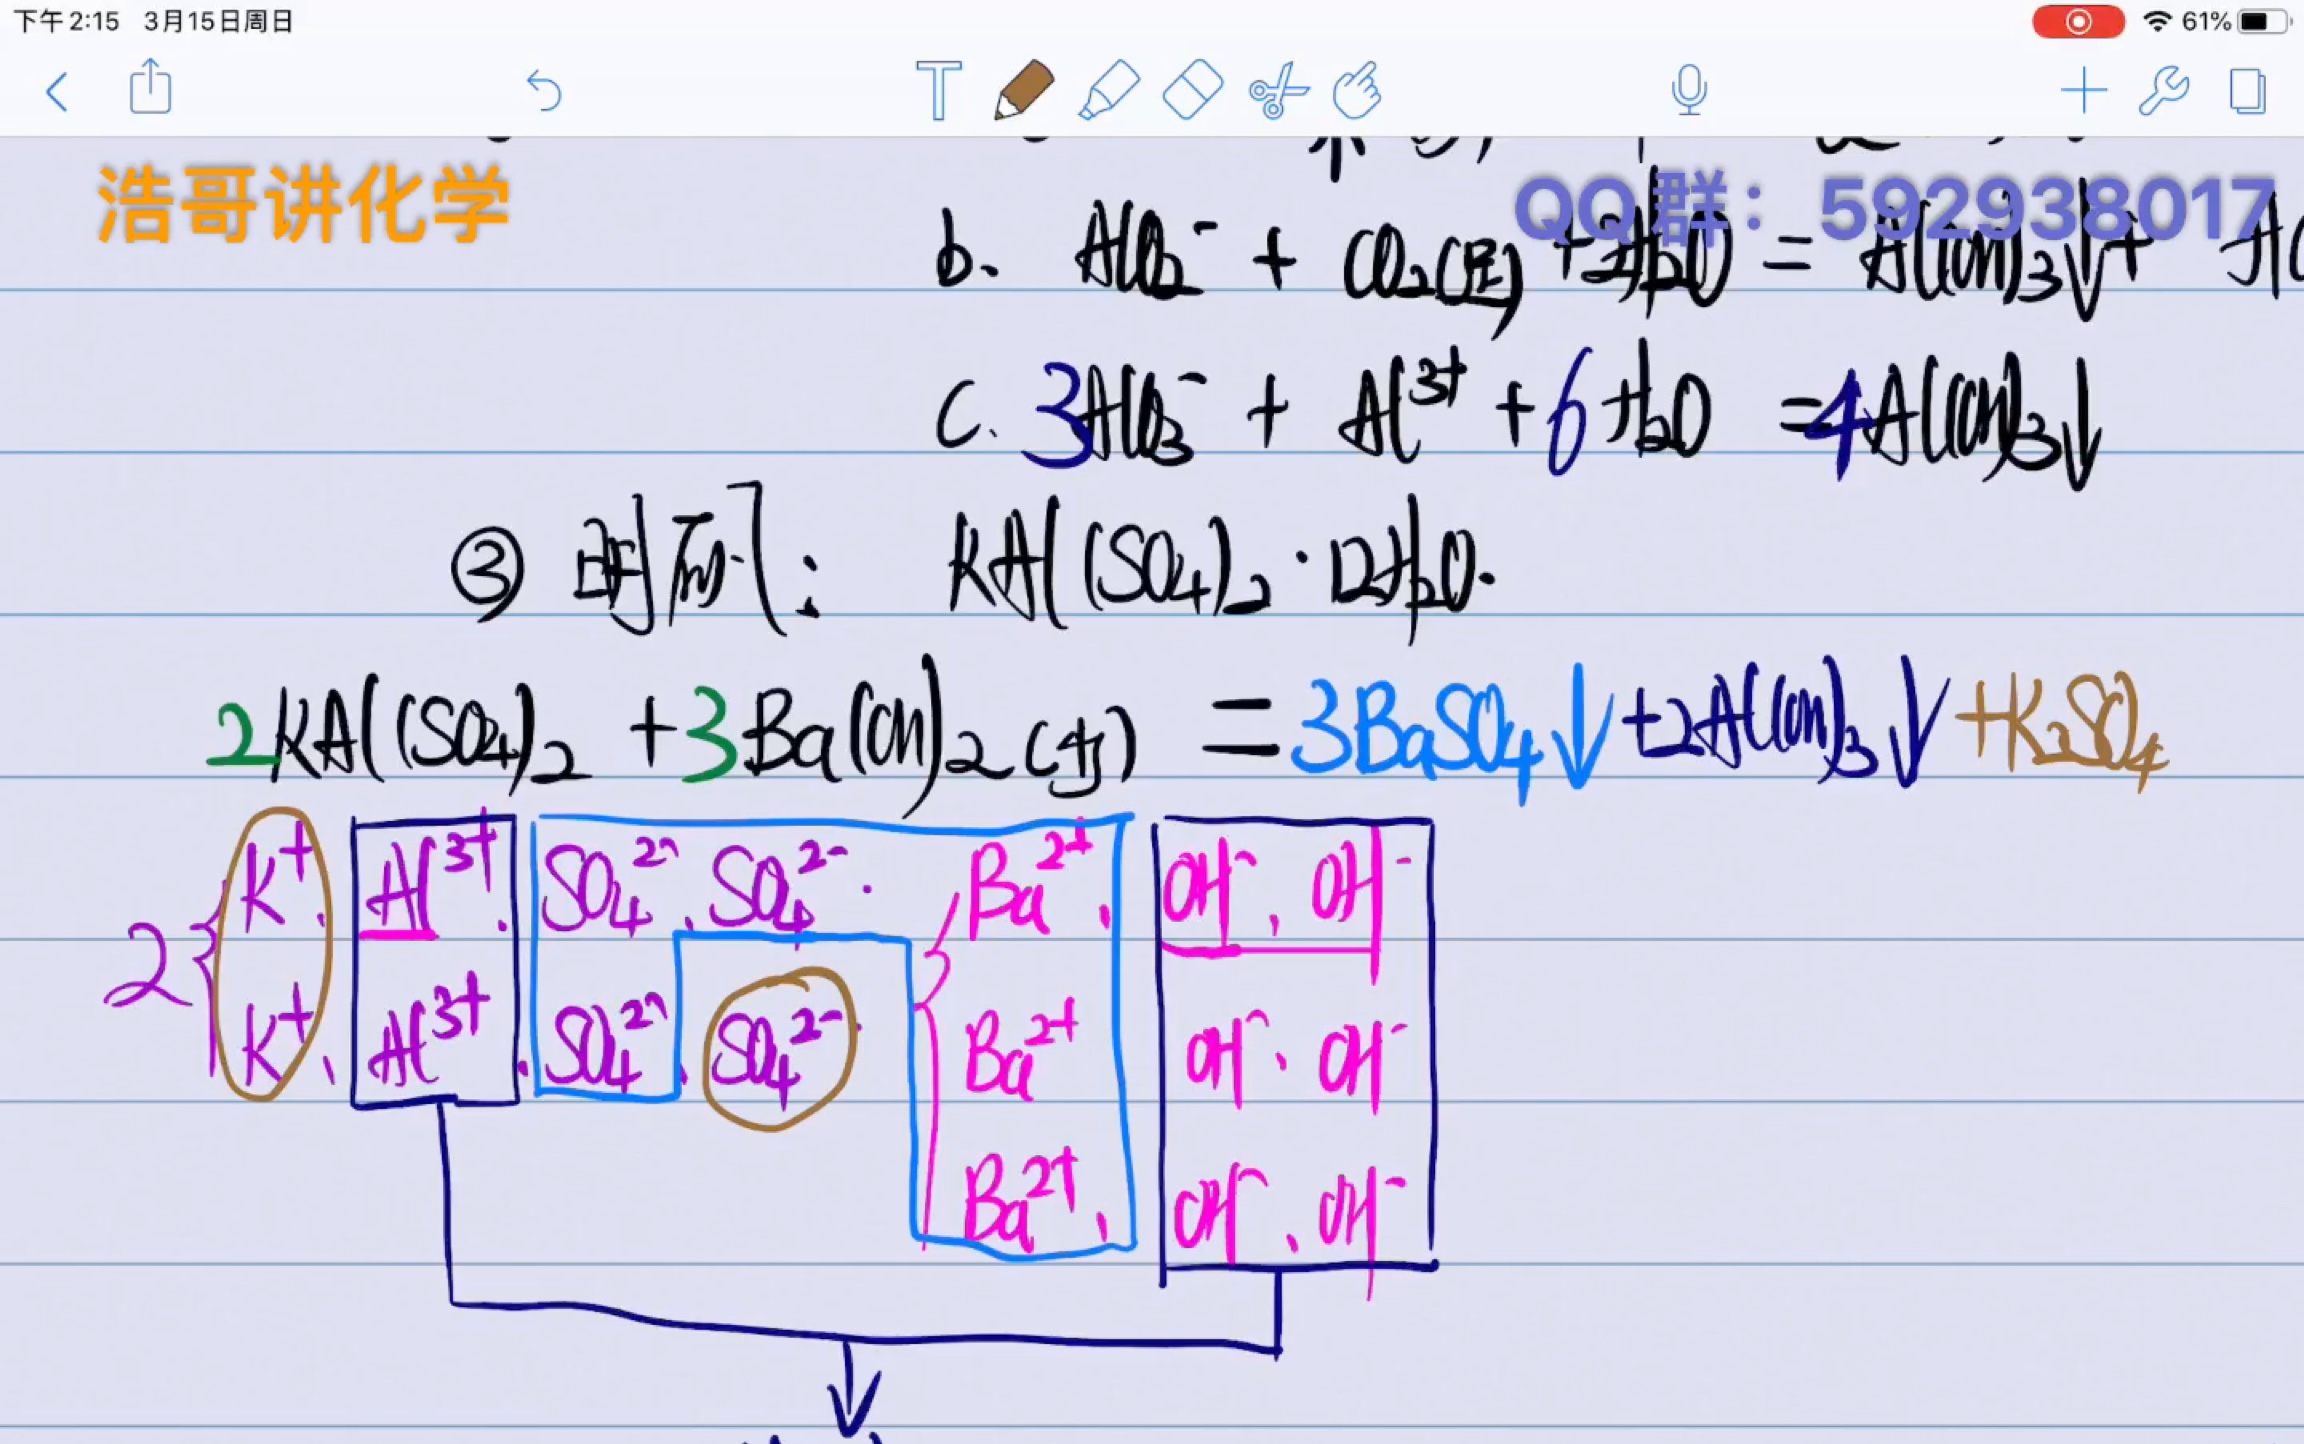 下午2:15 3月15日周日 61%
浩哥讲化学 QQ群：592938017
b. AlO₂⁻ + CO₂(足) + 2H₂O = Al(OH)₃↓ +
c. 3AlO₂⁻ + Al³⁺ + 6H₂O = 4Al(OH)₃↓
③ 明矾： KAl(SO₄)₂·12H₂O.
2KAl(SO₄)₂ + 3Ba(OH)₂(少) = 3BaSO₄↓ + 2Al(OH)₃↓ + K₂SO₄
2{ K⁺、 Al³⁺、 SO₄²⁻、 SO₄²⁻. 3{ Ba²⁺、 OH⁻、 OH⁻
K⁺、 Al³⁺、 SO₄²⁻、 SO₄²⁻ Ba²⁺ OH⁻、 OH⁻
Ba²⁺、 OH⁻、 OH⁻